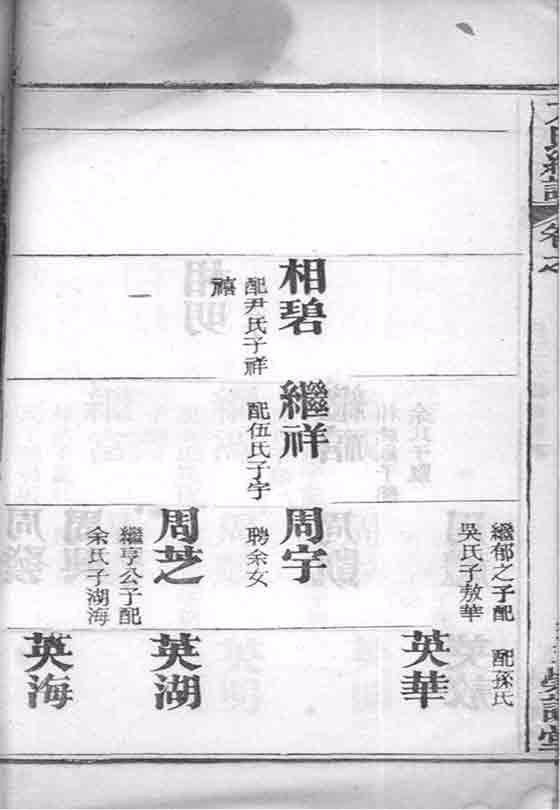 相碧
配尹氏子祥
禧
繼祥
配伍氏子宇
繼郁之子配
吳氏子敖華
周宇
聘余女
周芝
繼亨公子配
余氏子湖海
配孫氏
英華
英湖
英海